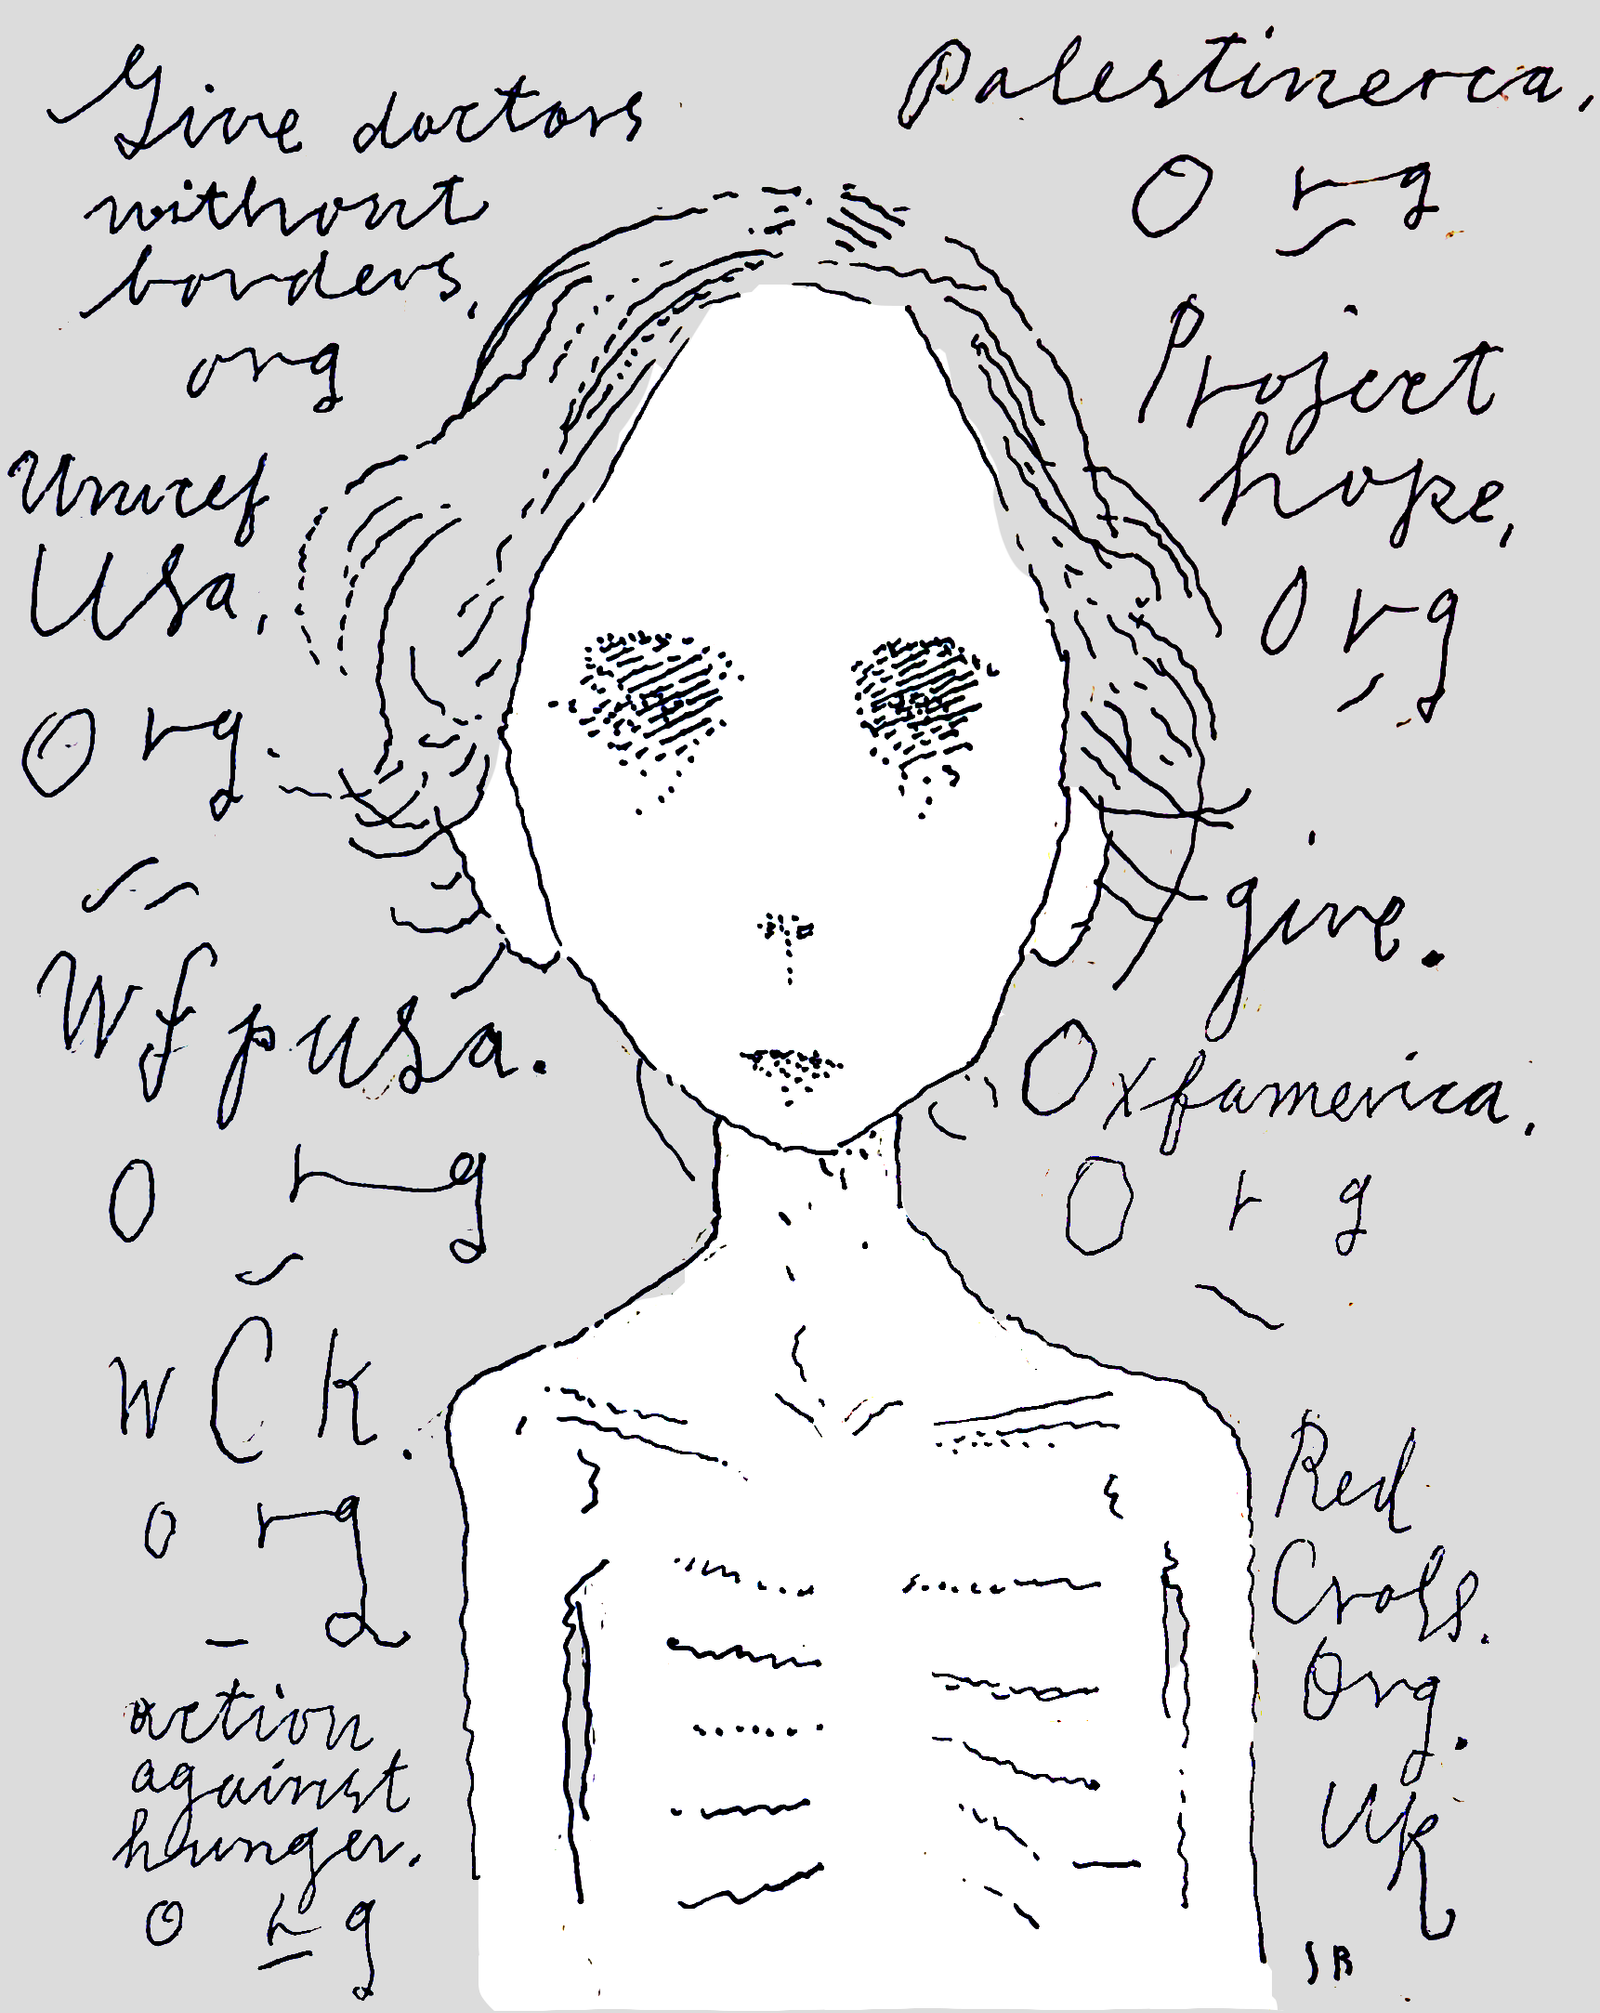 Give doctors
without
borders.
org
Unicef
Usa.
Org.
Wfpusa.
Org
WCK.
org
action
against
hunger.
org
Palestinerca.
Org
Project
hope,
Org
give.
Oxfamerica.
Org
Red
Cross.
Org.
UK
SR